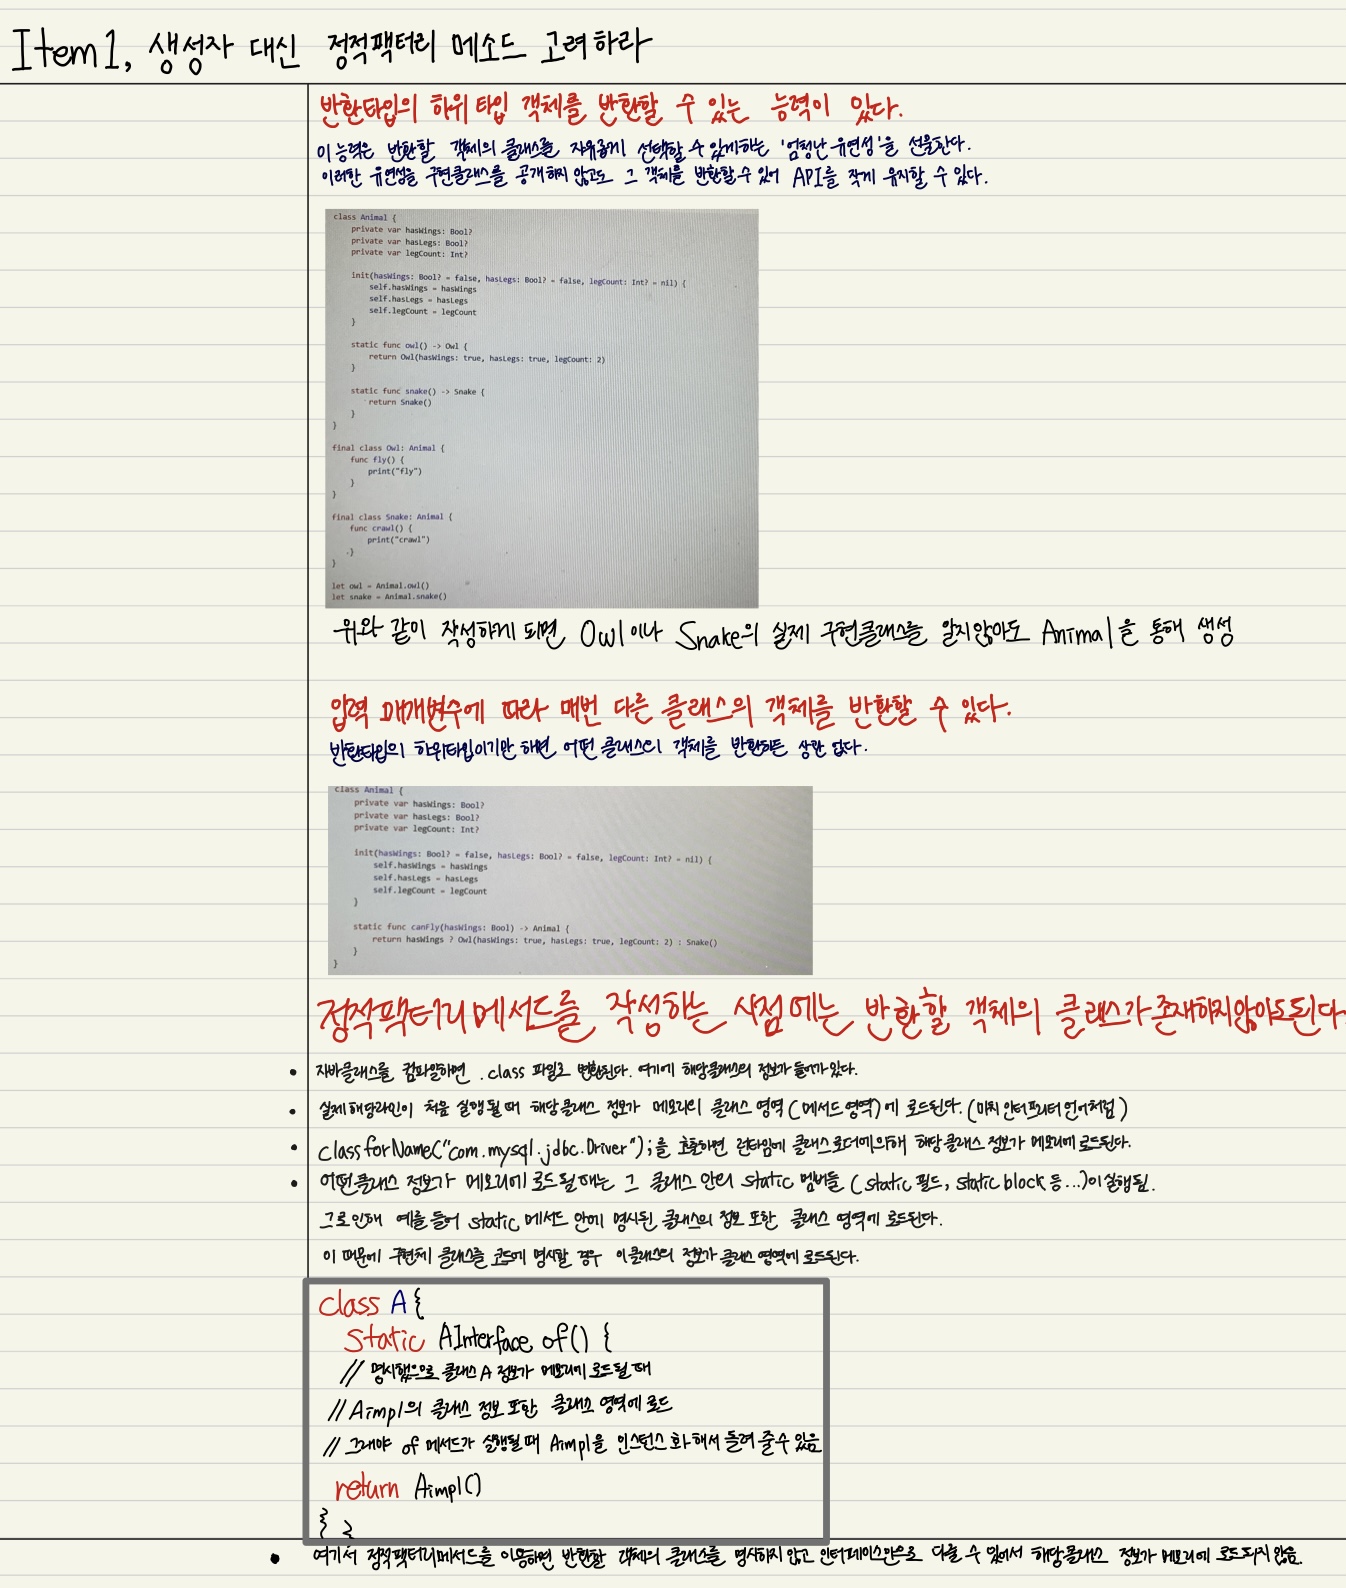 Item1, 생성자 대신 정적팩터리 메소드 고려하라
반환타입의 하위 타입 객체를 반환할 수 있는 능력이 있다.
이 능력은 반환할 객체의 클래스를 자유롭게 선택할 수 있게하는 '엄청난 유연성'을 선물한다.
이러한 유연성을 구현클래스를 공개하지 않고도 그 객체를 반환할 수 있어 API를 작게 유지할 수 있다.
class Animal {
private var hasWings: Bool?
private var hasLegs: Bool?
private var legCount: Int?
init(hasWings: Bool? = false, hasLegs: Bool? = false, legCount: Int? = nil) {
self.hasWings = hasWings
self.hasLegs = hasLegs
self.legCount = legCount
}
static func owl() -> Owl {
return Owl(hasWings: true, hasLegs: true, legCount: 2)
}
static func snake() -> Snake {
return Snake()
}
}
final class Owl: Animal {
func fly() {
print("fly")
}
}
final class Snake: Animal {
func crawl() {
print("crawl")
}
}
let owl = Animal.owl()
let snake = Animal.snake()
위와 같이 작성하게 되면 Owl이나 Snake의 실제 구현클래스를 알지않아도 Animal을 통해 생성
입력 매개변수에 따라 매번 다른 클래스의 객체를 반환할 수 있다.
반환타입의 하위타입이기만 하면 어떤 클래스의 객체를 반환하든 상관 없다.
class Animal {
private var hasWings: Bool?
private var hasLegs: Bool?
private var legCount: Int?
init(hasWings: Bool? = false, hasLegs: Bool? = false, legCount: Int? = nil) {
self.hasWings = hasWings
self.hasLegs = hasLegs
self.legCount = legCount
}
static func canFly(hasWings: Bool) -> Animal {
return hasWings ? Owl(hasWings: true, hasLegs: true, legCount: 2) : Snake()
}
}
정적팩터리 메서드를 작성하는 시점에는 반환할 객체의 클래스가 존재하지않아도된다.
• 자바클래스를 컴파일하면 .class 파일로 변환된다. 여기에 해당클래스의 정보가 들어가있다.
• 실제해당라인이 처음 실행될때 해당클래스 정보가 메모리의 클래스 영역(메서드 영역)에 로드된다. (마치 인터프리터 언어처럼)
• classforName("com.mysql.jdbc.Driver");을 호출하면 런타임에 클래스로더에의해 해당클래스 정보가 메모리에 로드된다.
• 어떤클래스 정보가 메모리에 로드될때는 그 클래스 안의 static 멤버들 (static 필드, static block 등...)이 실행됨.
그로인해 예를들어 static 메서드 안에 명시된 클래스의 정보 또한 클래스 영역에 로드된다.
이 때문에 구현체 클래스를 코드에 명시할 경우 이클래스의 정보가 클래스 영역에 로드된다.
class A {
static AInterface of() {
// 명시했으므로 클래스 A 정보가 메모리에 로드될 때
// Aimpl의 클래스 정보 또한 클래스 영역에 로드
// 그래야 of 메서드가 실행될 때 Aimpl을 인스턴스화해서 돌려 줄수 있음
return Aimpl()
} }
• 여기서 정적팩터리메서드를 이용하면 반환할 객체의 클래스를 명시하지 않고 인터페이스만으로 다룰 수 있어서 해당클래스 정보가 메모리에 로드되지 않음.